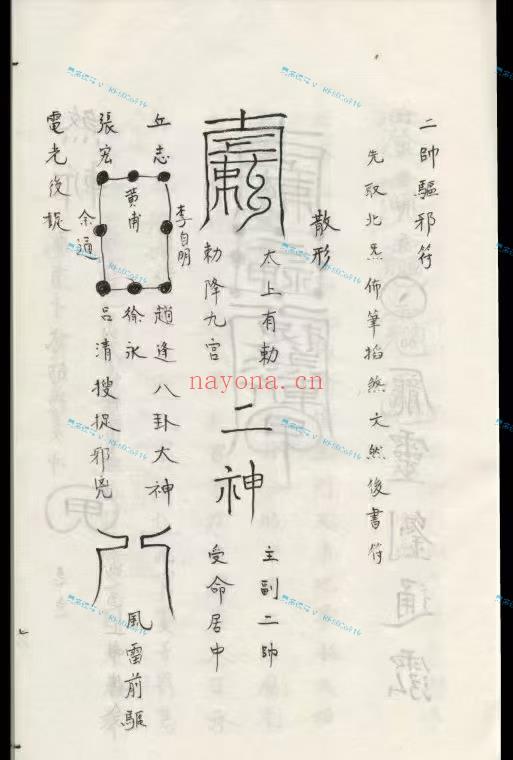 二帥驅邪符
先取北炁佈筆掐煞文然後書符
散形
太上有勅
勅降九宮
二神
主副二帥
受命居中
丘志
李自明
趙逢八卦大神
張宏
黄甫
徐永
余通
呂清搜捉邪兇
電光後捉
風雷前驅
nayona.cn